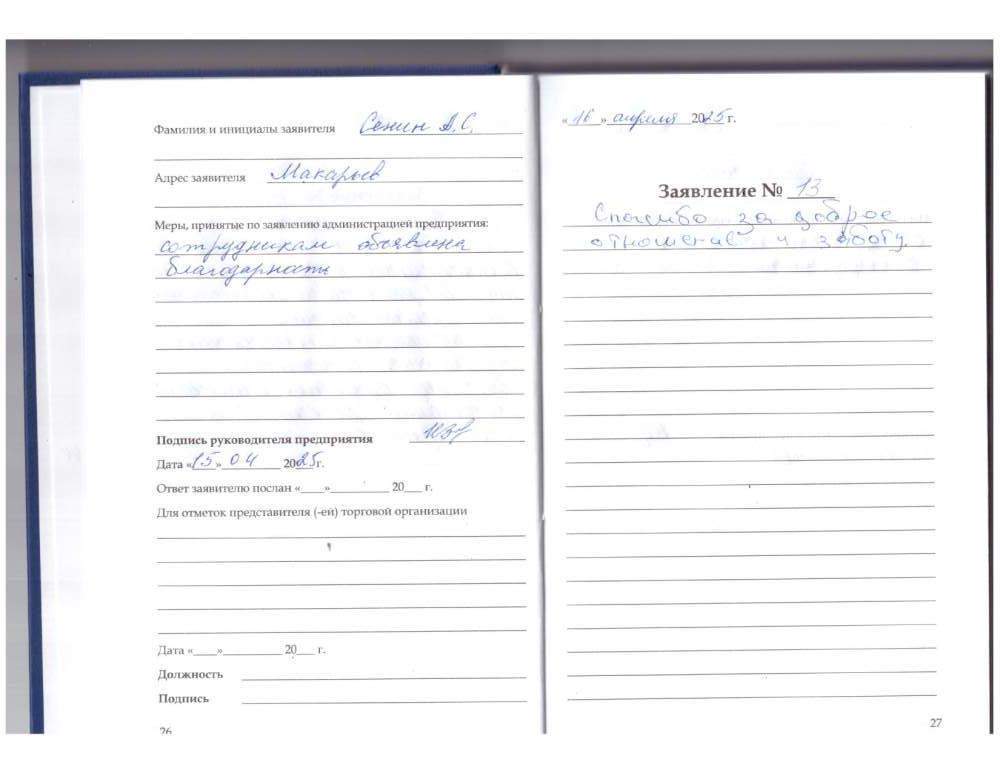 Фамилия и инициалы заявителя Сенин А.С.
Адрес заявителя Макарьев
Меры, принятые по заявлению администрацией предприятия:
сотрудникам объявлена
благодарность
Подпись руководителя предприятия
Дата «15» 04 2025г.
Ответ заявителю послан «____»__________ 20___ г.
Для отметок представителя (-ей) торговой организации
Дата «____»__________ 20___ г.
Должность
Подпись
26
«16» апреля 2025г.
Заявление № 13
Спасибо за доброе
отношение и заботу.
27